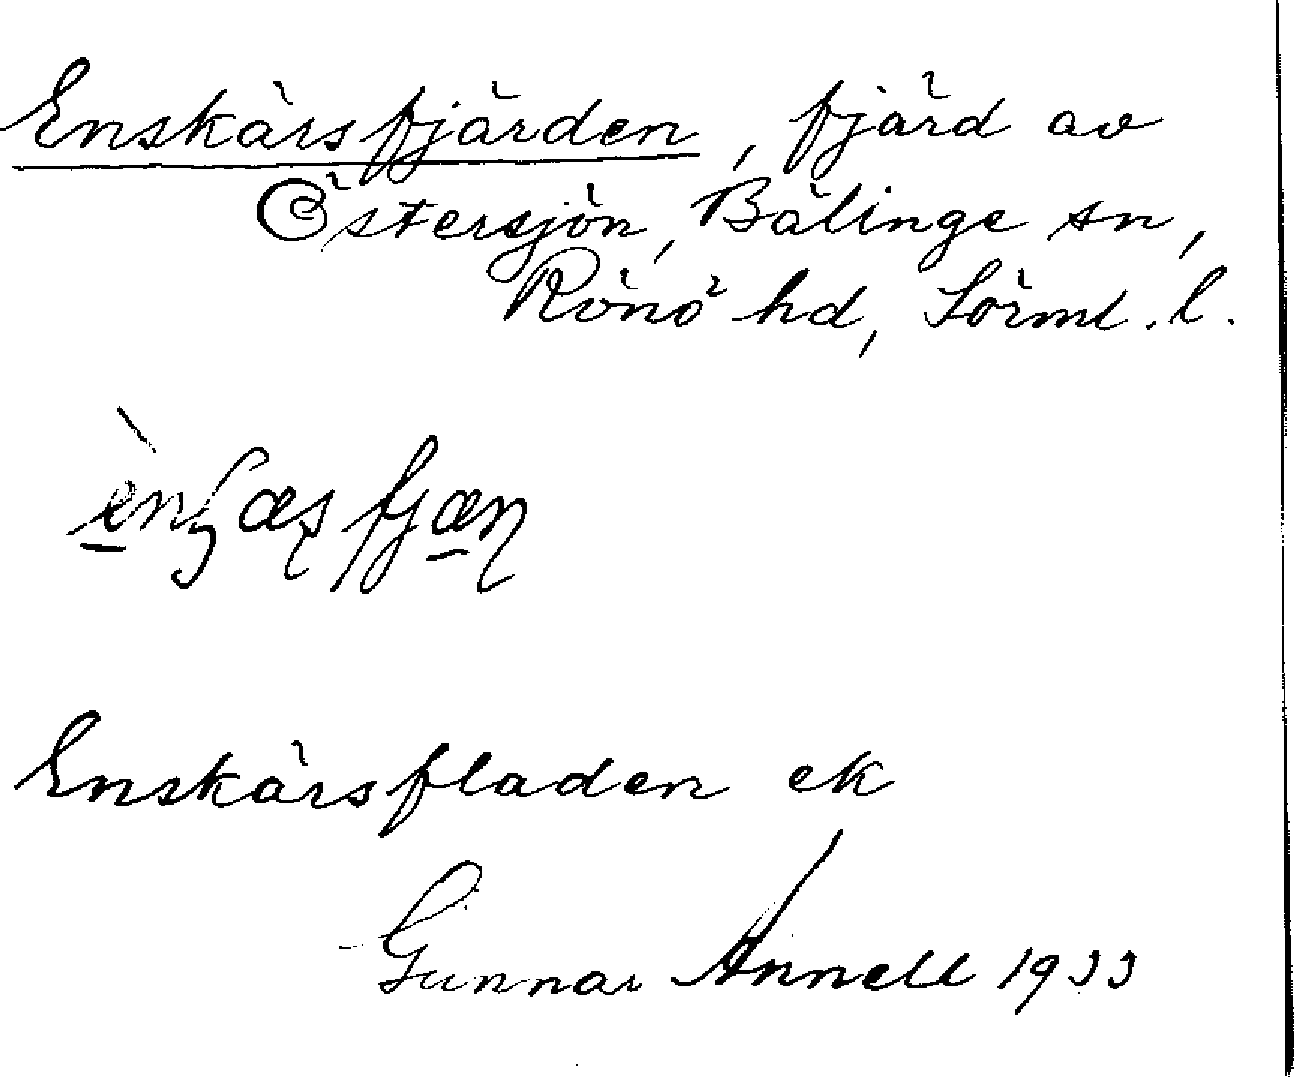 Enskärsfjärden, fjärd av
Östersjön, Bälinge sn,
Rönö hd, Sörml. l.
Enskärsfladen ek
Gunnar Annell 1933